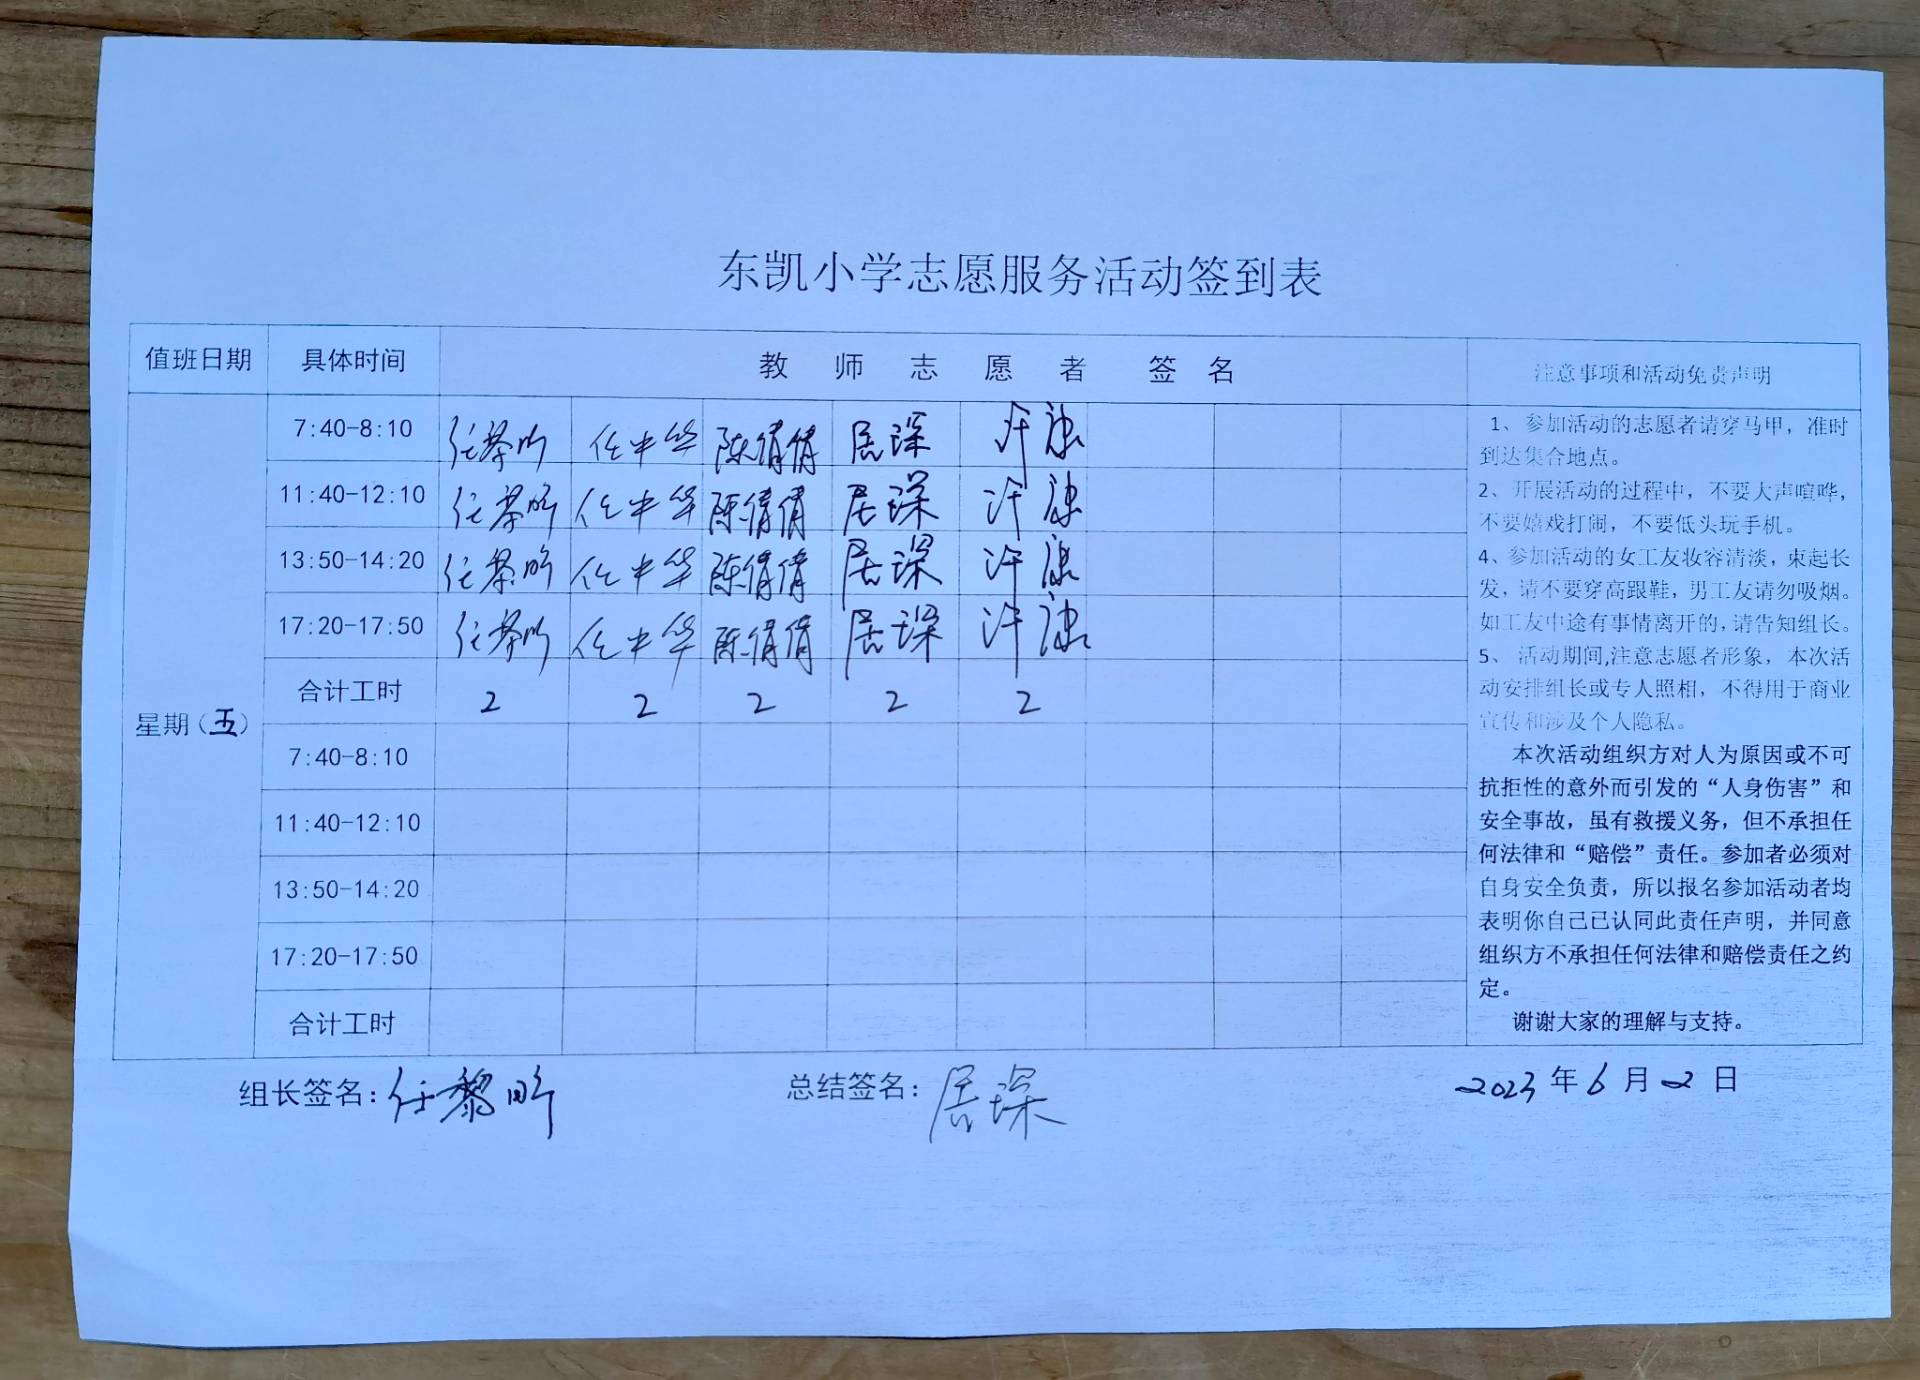 东凯小学志愿服务活动签到表
值班日期 具体时间 教师志愿者 签名 注意事项和活动免责声明
星期（五）
7:40-8:10 任黎昕 任中华 陈倩倩 居琛 许康
11:40-12:10 任黎昕 任中华 陈倩倩 居琛 许康
13:50-14:20 任黎昕 任中华 陈倩倩 居琛 许康
17:20-17:50 任黎昕 任中华 陈倩倩 居琛 许康
合计工时 2 2 2 2 2
7:40-8:10
11:40-12:10
13:50-14:20
17:20-17:50
合计工时
1、参加活动的志愿者请穿马甲，准时
到达集合地点。
2、开展活动的过程中，不要大声喧哗，
不要嬉戏打闹，不要低头玩手机。
4、参加活动的女工友妆容清淡，束起长
发，请不要穿高跟鞋，男工友请勿吸烟。
如工友中途有事情离开的，请告知组长。
5、 活动期间,注意志愿者形象，本次活
动安排组长或专人照相，不得用于商业
宣传和涉及个人隐私。
本次活动组织方对人为原因或不可
抗拒性的意外而引发的“人身伤害”和
安全事故，虽有救援义务，但不承担任
何法律和“赔偿”责任。参加者必须对
自身安全负责，所以报名参加活动者均
表明你自己已认同此责任声明，并同意
组织方不承担任何法律和赔偿责任之约
定。
谢谢大家的理解与支持。
组长签名：任黎昕 总结签名：居琛 2023年6月2日